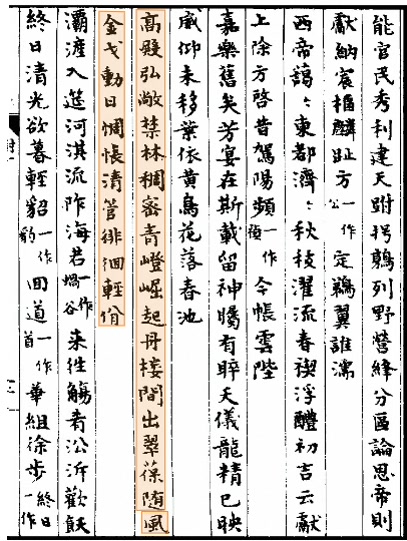 能官民秀利建天跗枵鶉列野營絳分區論思帝則
獻納宸樞麟趾方一作公定鵜翼誰濡
西帝藹〻東都濟〻秋枝濯流春禊浮醴初言云獻
上除方啓昔駕陽頻一作瀕今帳雲陛
嘉樂舊矣芳宴在斯載留神矚有睟天儀龍精已映
威仰未移葉依黃鳥花落春池
高殿弘敞禁林稠密青嶝崛起丹樓間出翠葆随風
金戈動日惆悵清管徘徊輕佾
灞滻入筵河淇流阼海若一作蝸谷来往觴肴沿泝歡飫
終日清光欲暮輕貂一作豹回道一作首華組徐步終日一作